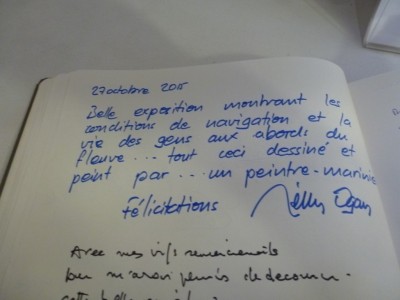 27 octobre 2015
Belle exposition montrant les
conditions de navigation et la
vie des gens aux abords du
fleuve... tout ceci dessiné et
peint par... un peintre-marinier
Félicitations
Avec mes vifs remerciements
de
cette belle